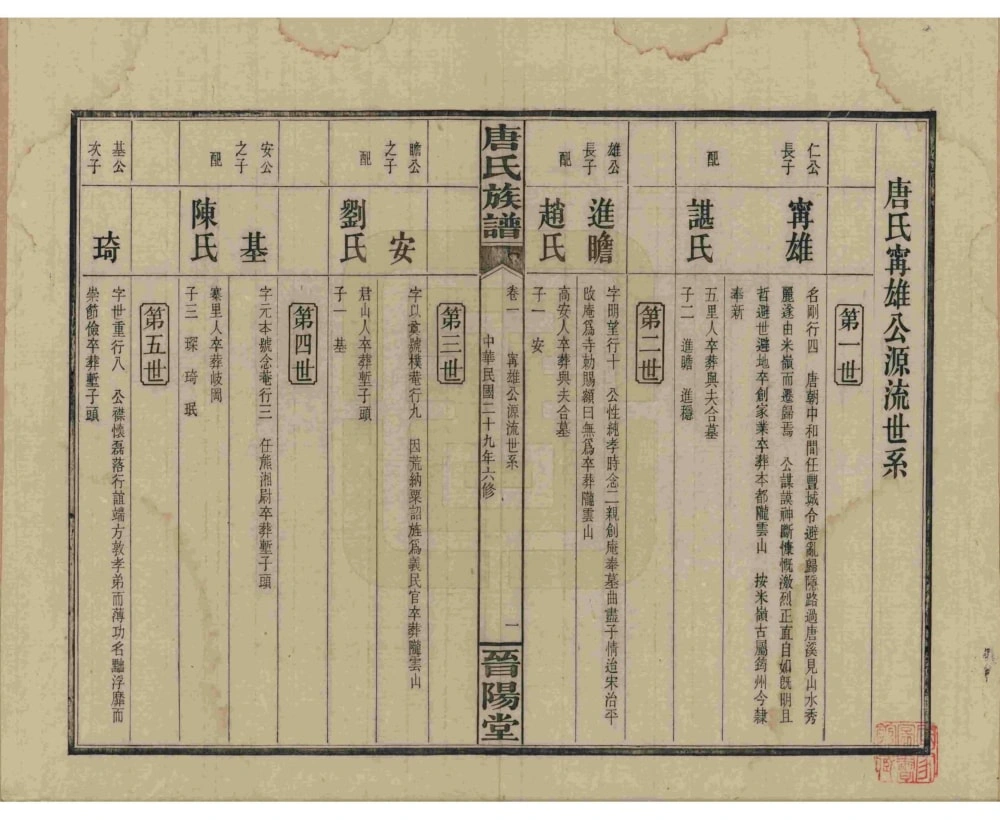 唐氏甯雄公源流世系
第一世
仁公
長子
甯雄
名剛行四　唐朝中和間任豐城令避亂歸隱路過唐溪見山水秀
麗遂由米嶺而遷歸焉　公謀謨神斷慷慨激烈正直自如既明且
哲避世避地卒創家業卒葬本都隴雲山　按米嶺古屬筠州今隸
奉新
配
諶氏
五里人卒葬與夫合墓
子二　進瞻　進穩
第二世
雄公
長子
進瞻
字明望行十　公性純孝時念二親創庵奉墓曲盡子情迨宋治平
改庵為寺勅賜額曰無為卒葬隴雲山
配
趙氏
高安人卒葬與夫合墓
子一　安
唐氏族譜
卷一　甯雄公源流世系
中華民國二十九年六修
一
晉陽堂
第三世
瞻公
之子
安
字以敦號樸菴行九　因荒納粟詔旌為義民官卒葬隴雲山
配
劉氏
君山人卒葬塹子頭
子一　基
第四世
安公
之子
基
字元本號念菴行三　任熊湘尉卒葬塹子頭
配
陳氏
寨里人卒葬歧岡
子三　琛　琦　珉
第五世
基公
次子
琦
字世重行八　公襟懷磊落行誼端方敦孝弟而薄功名黜浮靡而
崇節儉卒葬塹子頭